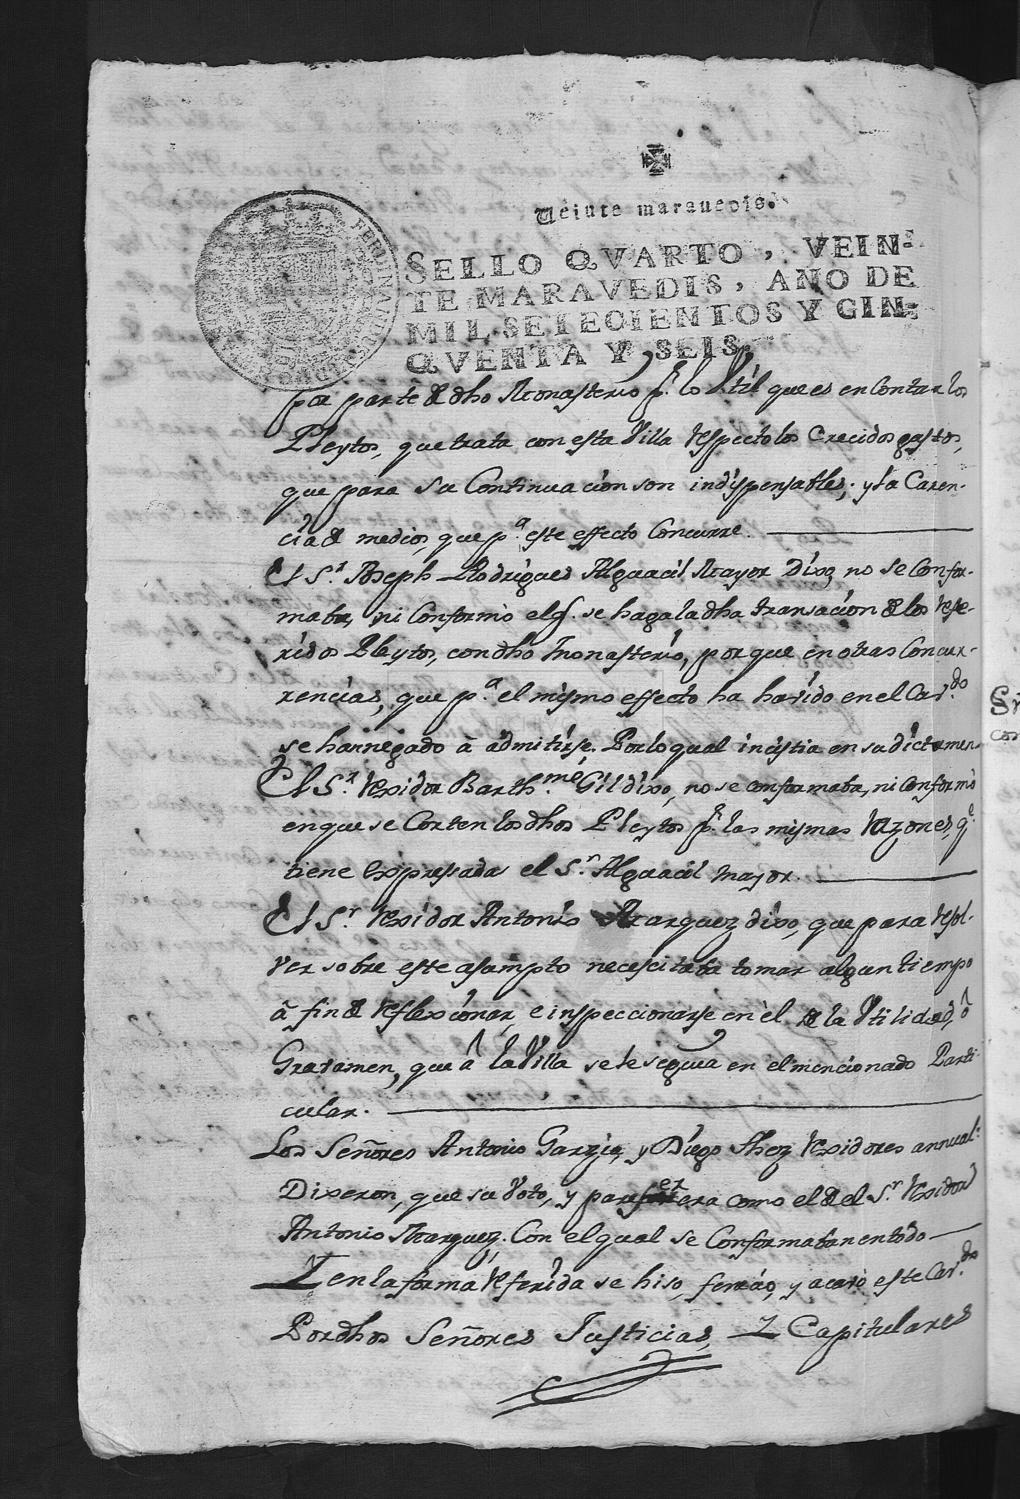 Veinte marauedis.
SELLO QVARTO, VEIN-
TE MARAVEDIS, AÑO DE
MIL SETECIENTOS Y CIN-
QVENTA Y SEIS.
FERDINANDUS
por parte de dho Monasterio pr. lo Vtil que es en Contar los
Pleytos, que trata con esta Villa respecto los Crecidos gastos,
que para su Continuacion son indispensables; y la Caren-
cia de medios, que pa. este effecto Concurre.
El Sr. Joseph Rodrigues Alguacil Mayor Dixo no se Confor-
maba, ni Conformò el q. se haga la dha transacion de los refe-
ridos Pleytos, con dho Monasterio, por que en otras Concur-
rencias, que pa. el mismo effecto ha havido en el Cavdo.
se han negado à admitirse. Por lo qual incistia en su dictamen
El Sr. rexidor Barthme. Gil dixo, no se conformaba, ni conformò
en que se Corten los dhos Pleytos pr. las mismas razones, qe.
tiene Expressadas el Sr. Alguacil mayor.
El Sr. rexidor Antonio Marquez dixo, que para resol-
ver sobre este asumpto necescitaba tomar algun tiempo
à fin de reflexionar, e inspeccionarse en èl de la Vtilidad, ò
Gravamen, que à la Villa se le segua en el mencionado Parti-
cular.
Los Señores Antonio Garzia, y Diego Shez rexidores annual.
Dixeron, que su Voto, y parecer era como el de el Sr. rexidor
Antonio Marquez. Con el qual se Conformaban en todo
Y en la forma referida se hiso, feneciò, y acavò este Cavdo.
Por dhos Señores Justicias, Y Capitulares